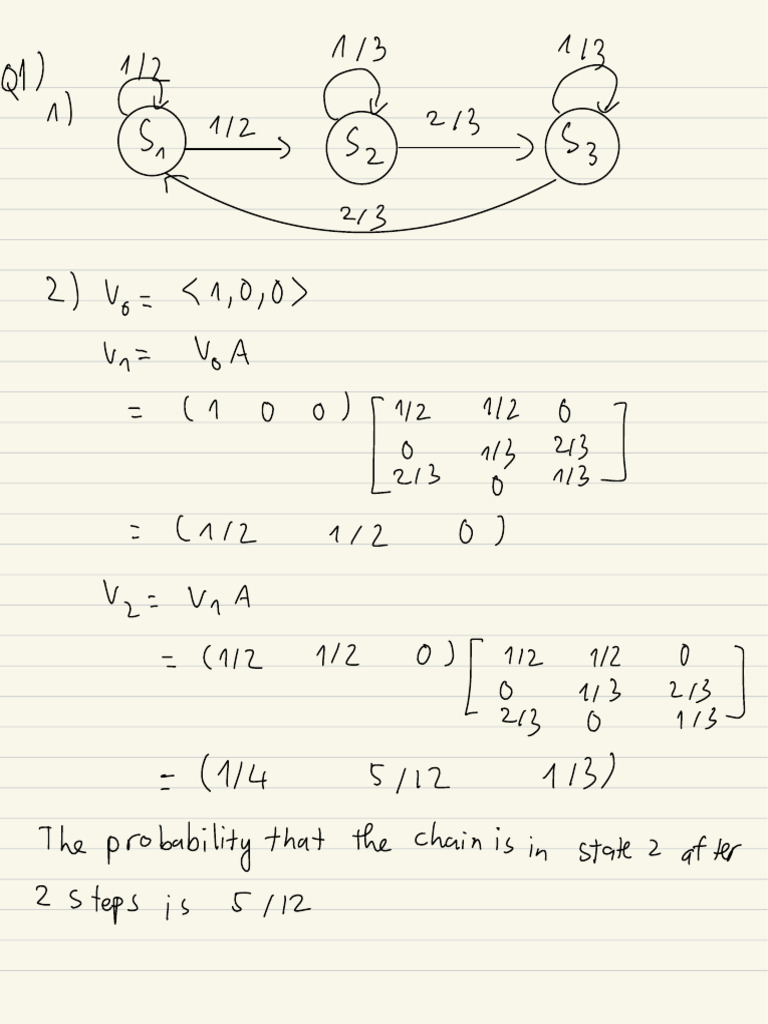 Q1)
1)
1/2 1/3 1/3
S1 1/2 S2 2/3 S3
2/3
2) V0 = <1,0,0>
V1 = V0 A
= (1 0 0) [1/2 1/2 0
0 1/3 2/3
2/3 0 1/3]
= (1/2 1/2 0)
V2 = V1 A
= (1/2 1/2 0) [1/2 1/2 0
0 1/3 2/3
2/3 0 1/3]
= (1/4 5/12 1/3)
The probability that the chain is in state 2 after
2 steps is 5/12